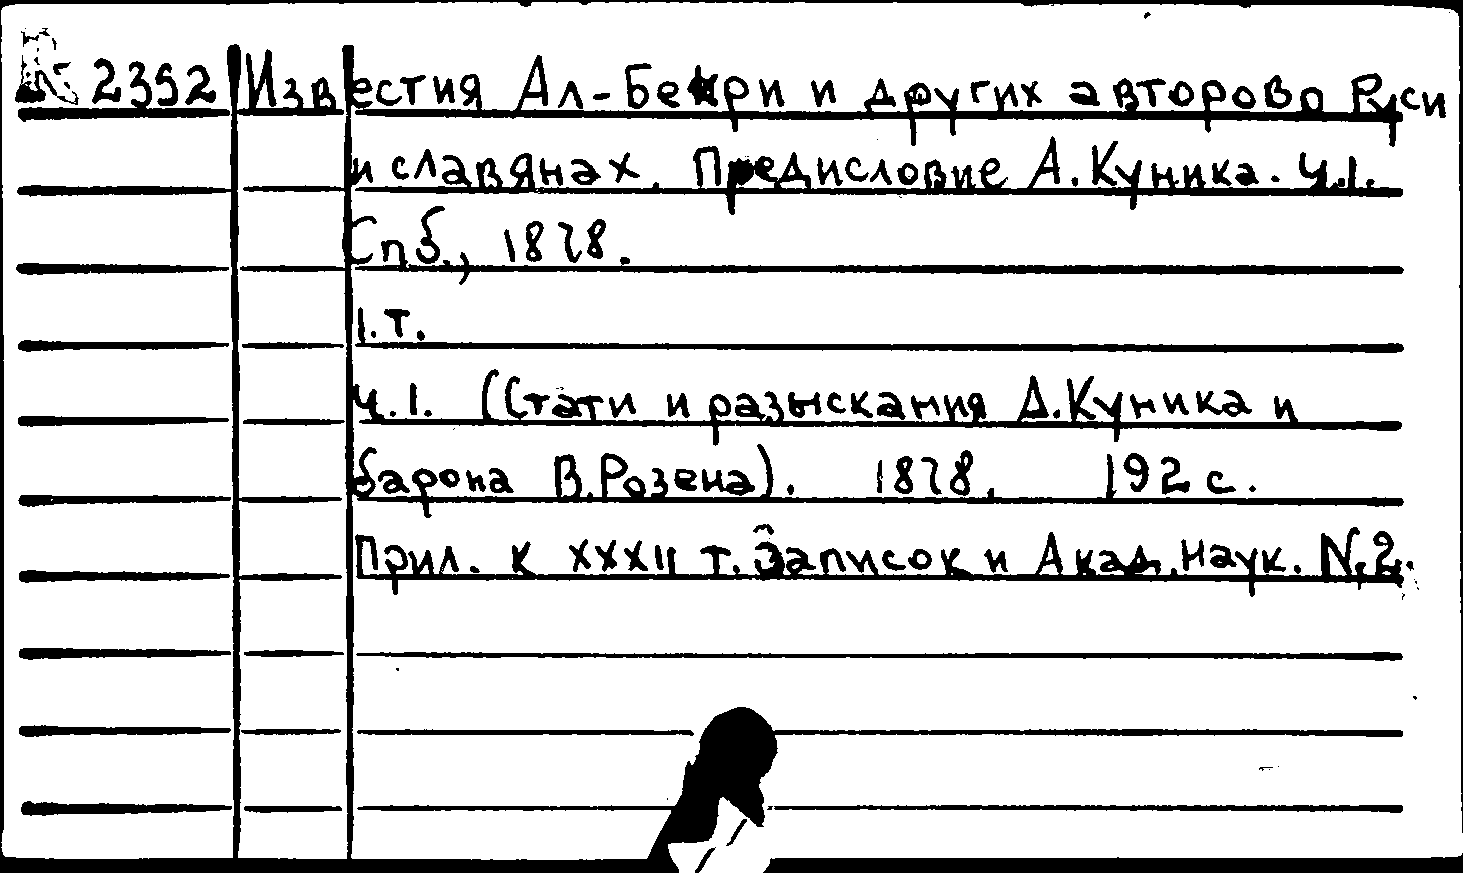 2392 Известия Ал-Бекри и других авторово Руси
и славянах. Предисловие А.Куника. Ч.1.
Спб., 1878.
1.т.
Ч.1. (Стати и разыскания А.Куника и
барона В.Розена). 1878. 192 с.
Прил. к XXXII т. Записок и Акад.наук. N.2.